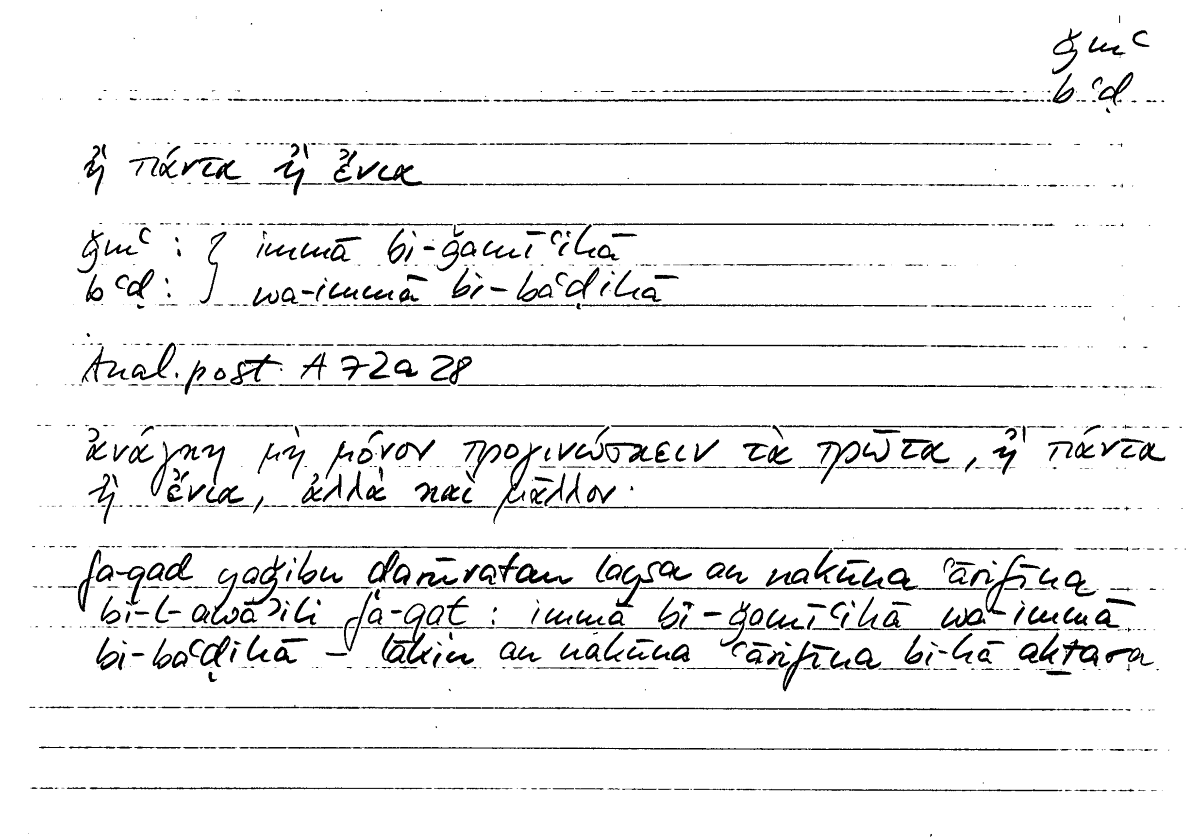 ǧmʿ
bʿḍ
ἢ πάντα ἢ ἔνια
ǧmʿ : { immā bi-ǧamīʿihā
bʿḍ : } wa-immā bi-baʿḍihā
Anal. post. A 72a 28
ἀνάγκη μὴ μόνον προγινώσκειν τὰ πρῶτα, ἢ πάντα
ἢ ἔνια, ἀλλὰ καὶ μᾶλλον·
fa-qad yaǧibu ḍarūratan laysa an nakūna ʿārifīna
bi-l-awāʾili fa-qaṭ : immā bi-ǧamīʿihā wa-immā
bi-baʿḍihā – lākin an nakūna ʿārifīna bi-hā akṯara